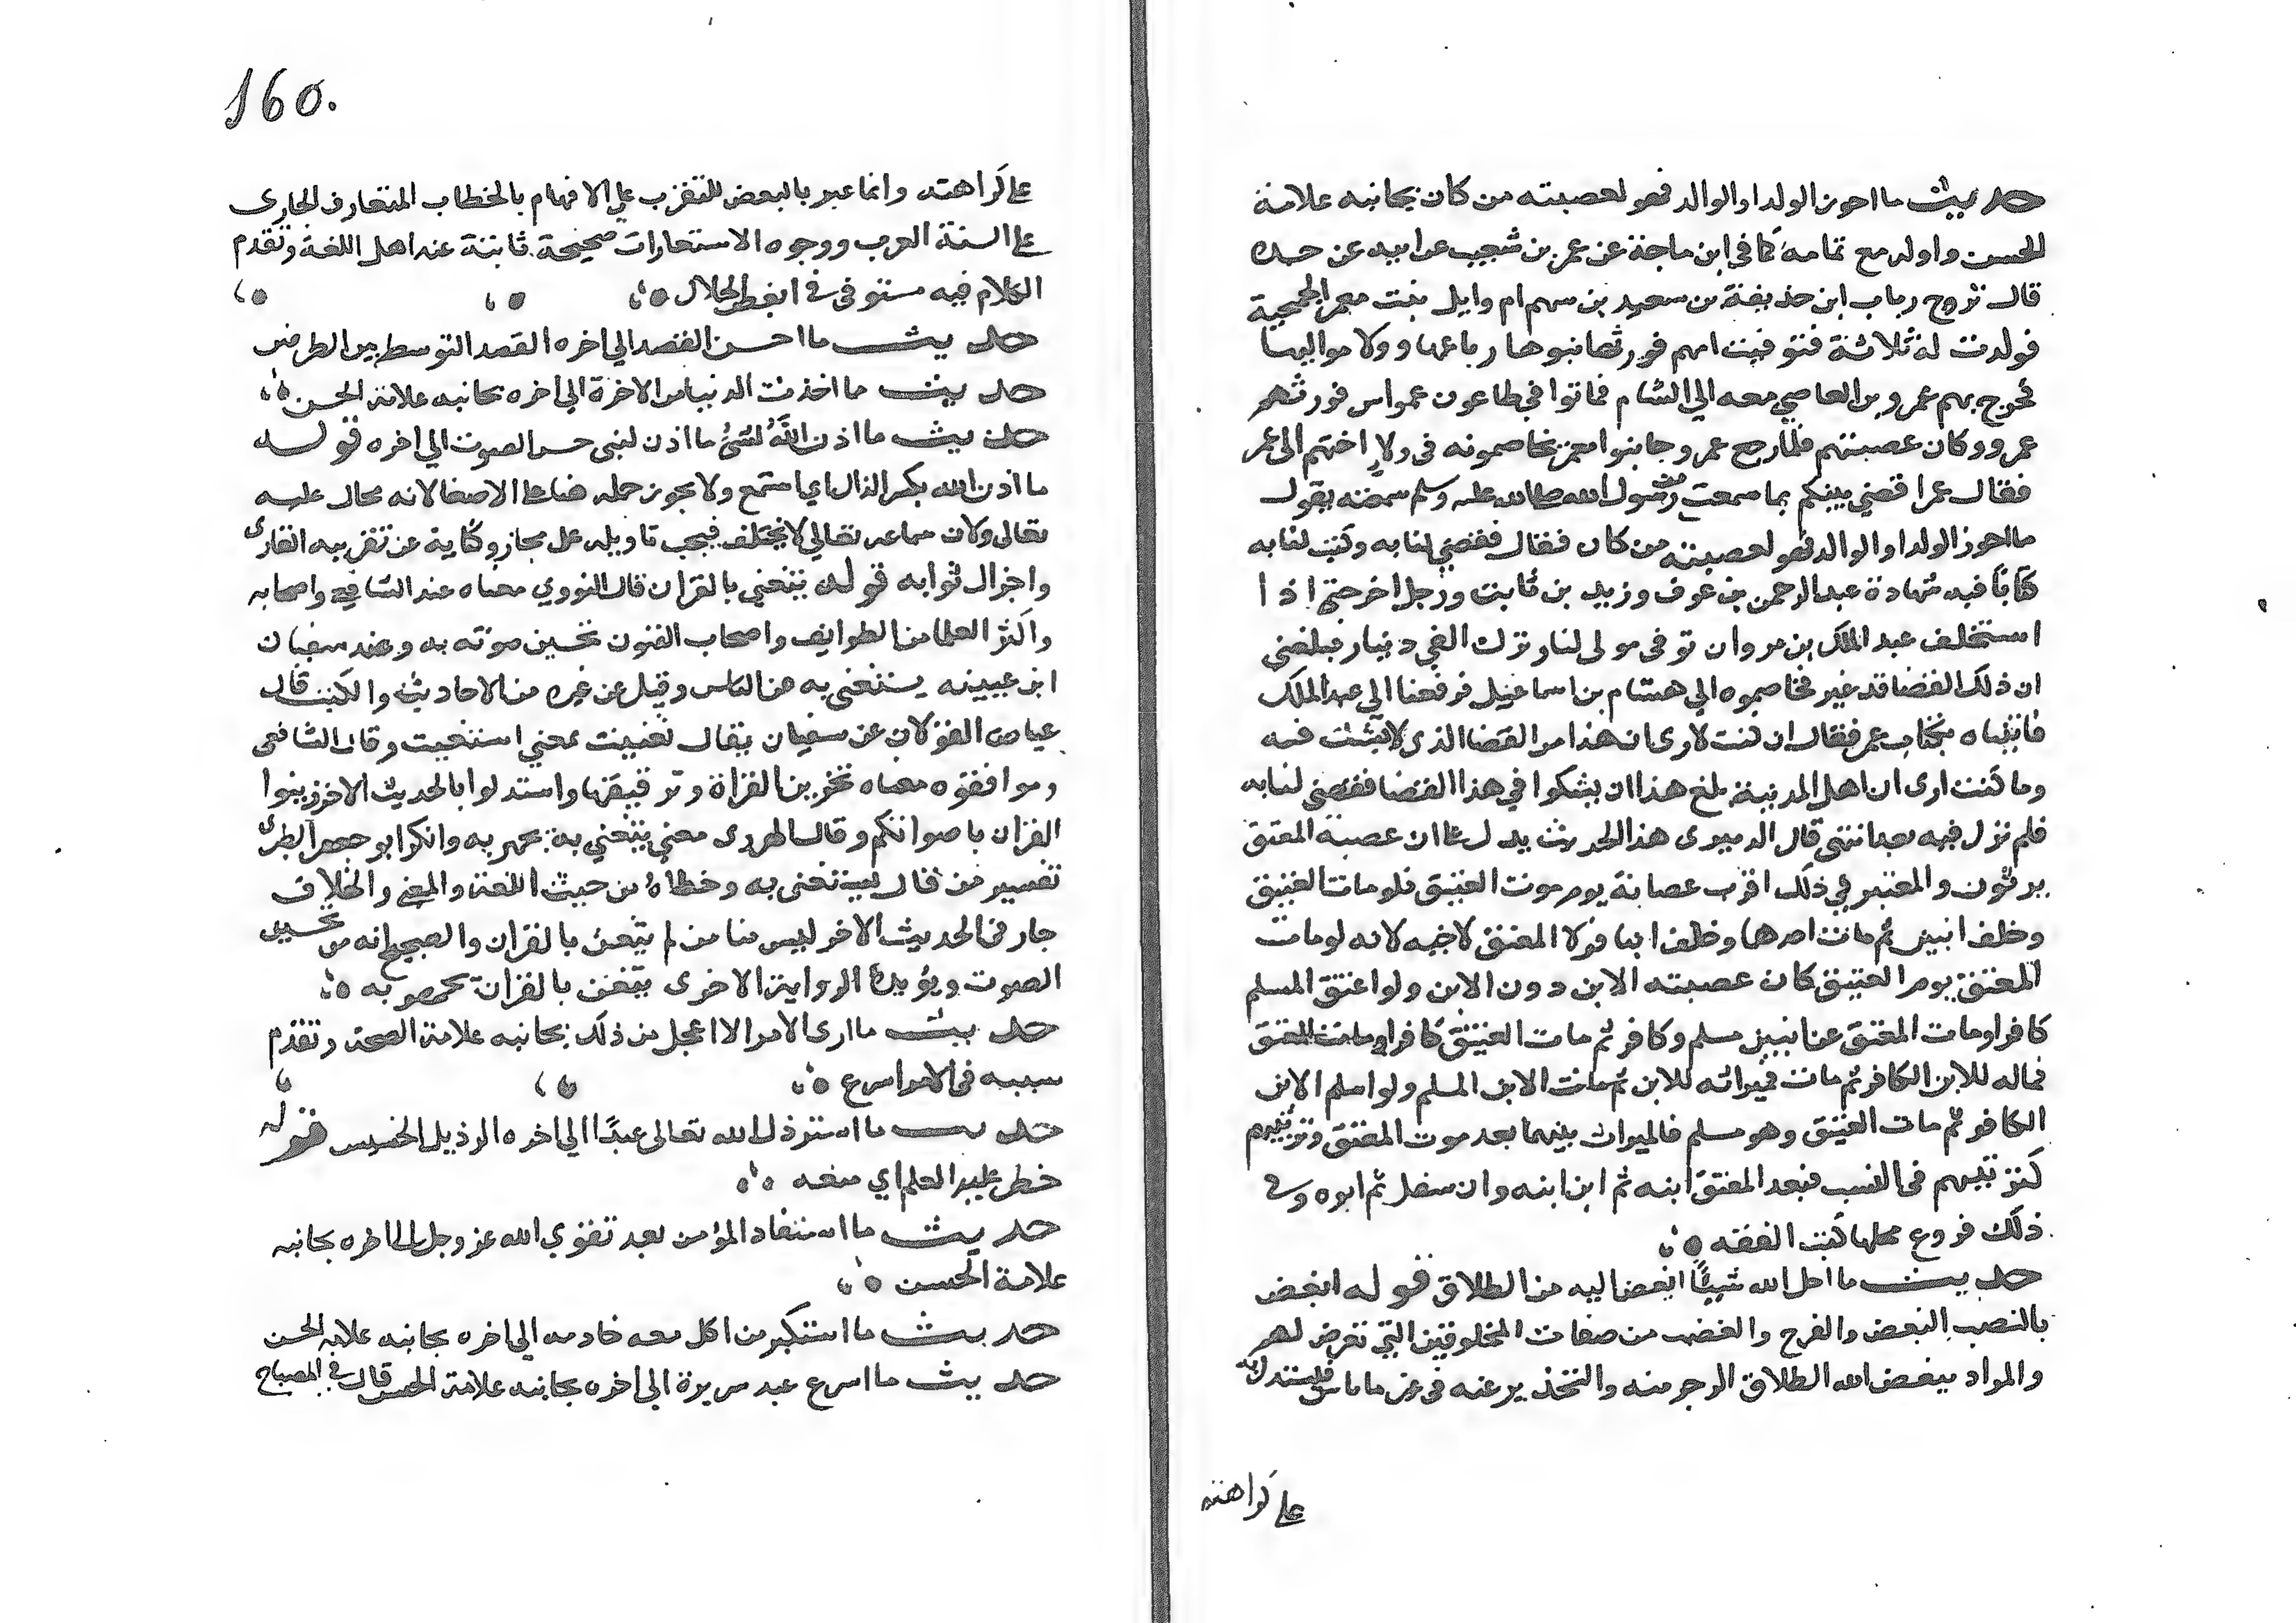 حديث ما احوز الولد او الوالد فهو لعصبته من كان بجانبه علامة
الحسن واوله مع تمامه كما في ابن ماجة عن عمر بن شعيب عن ابيه عن جده
قال تزوج رباب ابن حذيفة بن سعيد بن سهم ام وايل بنت معمر الجمحية
فولدت له ثلاثة فتوفيت امهم فورثها بنوها رباعها وولا مواليها
فخرج بهم عمرو بن العاصي معه الي الشام فماتوا في طاعون عمواس فورثهم
عمرو وكان عصبتهم فلما رجع عمرو جا بنوا معمر يخاصمونه في ولا اختهم الى عمر
فقال عمر اقضي بينكم بما سمعت من رسول الله صلى الله عليه وسلم سمعته يقول
ما احوز الولد او الوالد فهو لعصبته من كان فقال فقضي لنا به وكتب لنا به
كتابا فيه شهادة عبد الرحمن بن عوف وزيد بن ثابت ورجل اخر حتى اذا
استخلف عبد الملك بن مروان توفى مولى لنا وترك الفي دينار فبلغني
ان ذلك القضا قد غير فخاصموه الي هشام بن اسماعيل فرفعنا الي عبد الملك
فاتيناه بكتاب عمر فقال ان كنت لارى ان هذا من القضا الذي لا يشك فيه
وما كنت ارى ان اهل المدينة بلغ هذا ان يشكوا في هذا القضا فقضى لنا به
فلم نزل فيه بعد انتهى قال الدميري هذا الحديث يدل على ان عصبة المعتق
يرثون والمعتبر في ذلك اقرب عصابة يوم موت العتيق فلو مات العتيق
وخلف ابنين ثم مات احدهما وخلف ابنا فولا المعتق لاخيه لانه لو مات
المعتق يوم العتيق كان عصبته الابن دون الابن ولو اعتق المسلم
كافرا ومات المعتق عن ابنين مسلم وكافر ثم مات العتيق كافرا ومات المعتق
فماله للابن الكافر ثم مات فميراثه للابن ثم مات الابن المسلم ولو اسلم الابن
الكافر ثم مات العتيق وهو مسلم فالميراث بينهما بعد موت المعتق وترتيبهم
كترتيبهم في النسب فبعد المعتق ابنه ثم ابن ابنه وان سفل ثم ابوه وفي
ذلك فروع محلها كتب الفقه
حديث ما احل الله شيئا ابغض اليه من الطلاق قوله ابغض
بالنصب البغض والفرح والغضب من صفات المخلوقين التي تعرض لهم
والمراد ببغض الله الطلاق الزجر منه والتحذير عنه في غير ما باس فليستدل به
على كراهته
160.
على كراهته وانما عبر بالبعض للتقرب على الافهام بالخطاب المتعارف الجارى
على السنة العرب ووجوه الاستعارات صحيحة ثابتة عند اهل اللغة وتقدم
الكلام فيه مستوفى في ابغض الحلال
حديث ما احسن القصد الي اخره القصد التوسط بين الطرفين
حديث ما اخذت الدنيا من الاخرة الي اخره بجانبه علامة الحسن
حديث ما اذن الله لشئ ما اذن لنبى حسن الصوت الي اخره قوله
ما اذن الله بكسر الذال اي استمع ولا يجوز حمله هنا على الاصغا لانه محال عليه
تعالى ولان سماعه تعالي لا يختلف فيجب تاويله على مجاز وكناية عن تقريبه القارى
واجزال ثوابه قوله يتغني بالقران قال النووي معناه عند الشافعي واصحابه
واكثر العلما من الطوايف واصحاب الفنون تحسين صوته به وعند سفيان
ابن عيينه يستغنى به عن الناس وقيل عن غيره من الاحاديث والكتب قال
عياض القولان عن سفيان يقال تغنيت بمعني استغنيت وقال الشافعى
وموافقوه معناه تحزين القراة وترقيقها واستدلوا بالحديث الاخر زينوا
القران باصواتكم وقال الهروى معنى يتغني به يجهر به وانكر ابو جعفر الطبرى
تفسير من قال يستغنى به وخطاه من حيث اللغة والمعنى والخلاف
جار في الحديث الاخر ليس منا من لم يتغن بالقران والصحيح انه من تحسين
الصوت ويؤيده الرواية الاخرى يتغنى بالقران يجهر به
حديث ما ارى الامر الا اعجل من ذلك بجانبه علامة الصحة وتقدم
سببه في الامر اسرع
حديث ما استرذل الله تعالى عبدا الي اخره الرذيل الخسيس قوله
خطر عليه العلم اي منعه
حديث ما استفاد المؤمن بعد تقوي الله عز وجل الى اخره بجانبه
علامة الحسن
حديث ما استكبر من اكل معه خادمه الي اخره بجانبه علامة الحسن
حديث ما اسر عبد سريرة الى اخره بجانبه علامة الحسن قال في المصباح